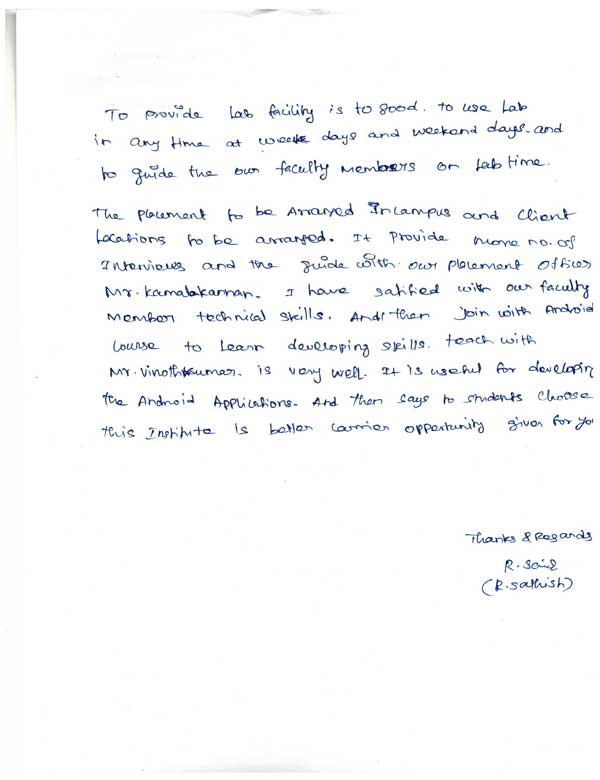 To provide Lab facility is to good. to use Lab
in any time at week days and weekend days. and
to guide the our faculty Members on Lab time.
The placement to be Arranged Incampus and Client
Locations to be arranged. It provide more no. of
Interviews and the guide with our placement Officer
Mr. Kamalakannan. I have satified with our faculty
Member technical skills. And then join with Android
Course to Learn developing skills. teach with
Mr. Vinothkumar. is very well. It is useful for developin
the Android Applications. And then says to students Choose
this Institute is better Carrier opportunity given for you
Thanks & Regards
R.
(R. Sathish)